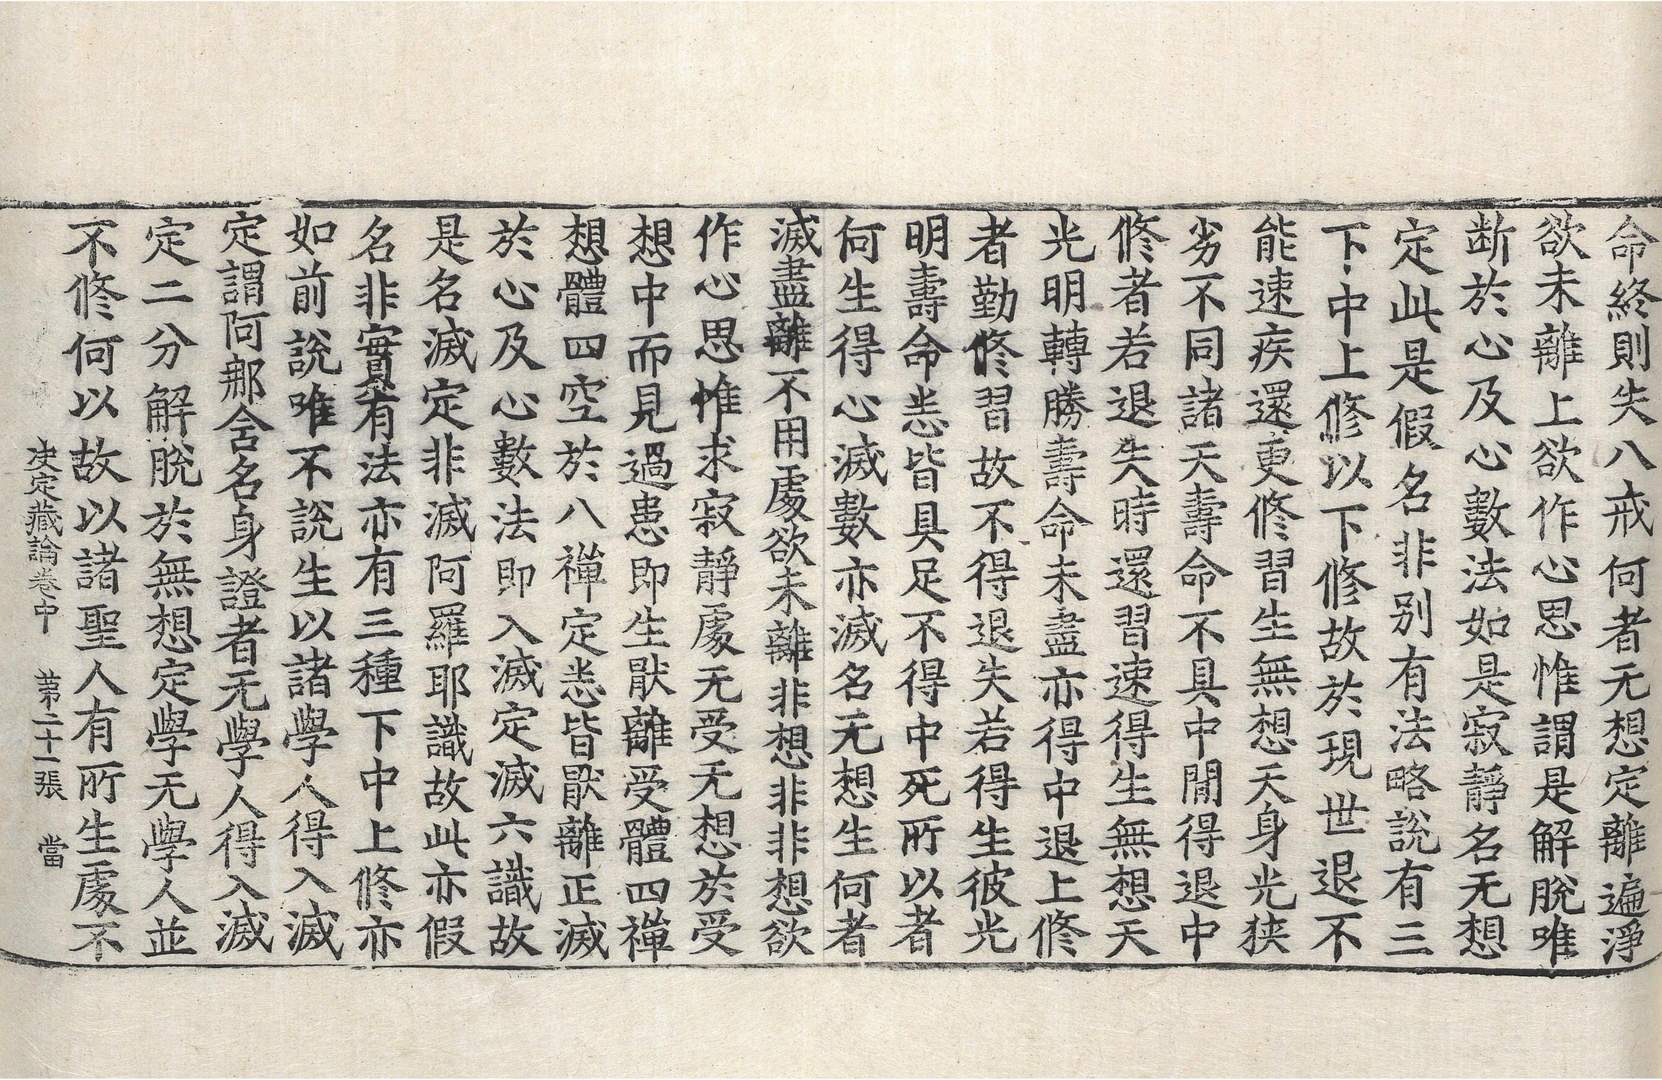 命終則失八戒何者无想定離遍淨
欲未離上欲作心思惟謂是解脫唯
断於心及心數法如是寂靜名无想
定此是假名非别有法略說有三
下中上修以下修故於現世退不
能速疾還更修習生無想天身光狹
劣不同諸天壽命不具中閒得退中
修者若退失時還習速得生無想天
光明轉勝壽命未盡亦得中退上修
者勤修習故不得退失若得生彼光
明壽命悉皆具足不得中死所以者
何生得心滅數亦滅名无想生何者
滅盡離不用處欲未離非想非非想欲
作心思惟求寂靜處无受无想於受
想中而見過患即生猒離受體四禪
想體四空於八禪定悉皆猒離正滅
於心及心數法即入滅定滅六識故
是名滅定非滅阿羅耶識故此亦假
名非實有法亦有三種下中上修亦
如前說唯不說生以諸學人得入滅
定謂阿那含名身證者无學人得入滅
定二分解脫於無想定學无學人並
不修何以故以諸聖人有所生處不
决定藏論卷中　第二十一張　當